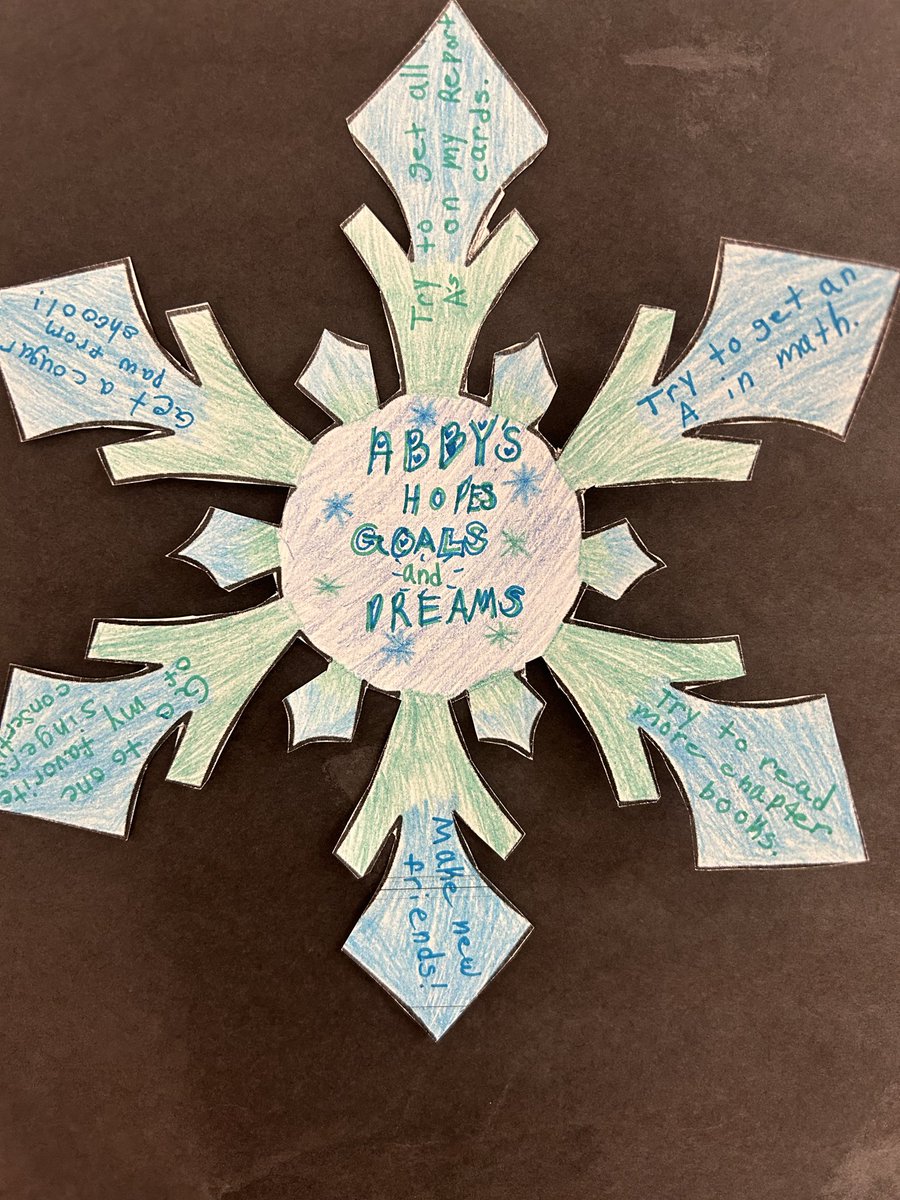 ABBY'S
HOPES
GOALS
-and-
DREAMS
Try to get all
A's on my Report
cards.
Try to get an
A in math.
Try to read
more chapter
books.
Make new
friends!
Go to one
of my favorite
singers
conserts
Get a cougar
paw from
shcool!